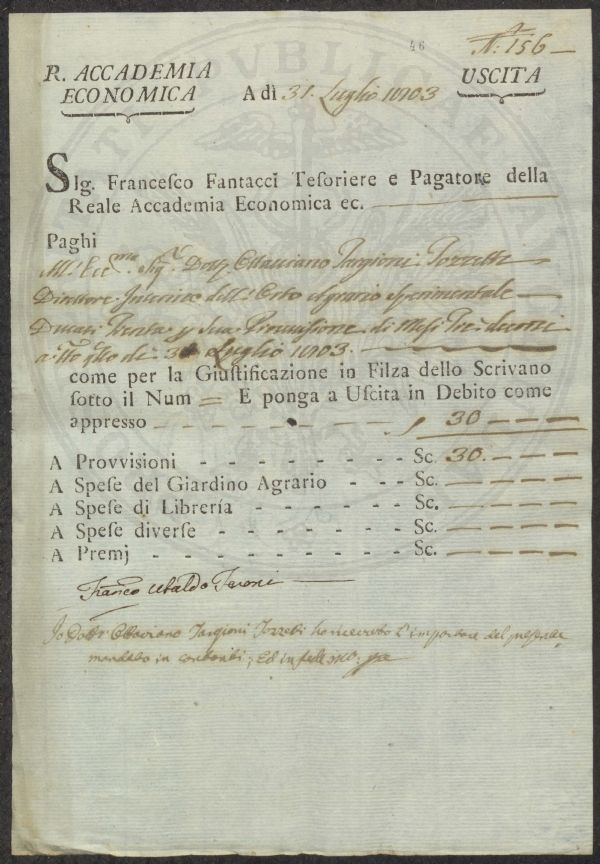 46
N: 156
R. ACCADEMIA
ECONOMICA
A dì 31. Luglio 1803
USCITA
SIg. Francesco Fantacci Teſoriere e Pagatore della
Reale Accademia Economica ec.
Paghi
All' Ecc.mo Sig.r Dott. Ottaviano Targioni Tozzetti
Direttore Interino dell' Orto Agrario Sperimentale
Ducati Trenta p sua Provvisione di Mesi Tre decorsi
a tto di 31 Luglio 1803.
come per la Giuſtificazione in Filza dello Scrivano
ſotto il Num = E ponga a Uſcita in Debito come
appreſſo - - - - - - - 30 - - -
A Provviſioni - - - - - - - - Sc. 30. - - -
A Speſe del Giardino Agrario - - - Sc. - - - -
A Speſe di Librería - - - - - - Sc. - - - -
A Speſe diverſe - - - - - - - - Sc. - - - -
A Premj - - - - - - - - - - Sc. - - - -
Franco Ubaldo Feroni
Io Dott: Ottaviano Targioni Tozzetti ho ricevuto l'importare del presente
mandato in contanti; Ed in fede mo: pa